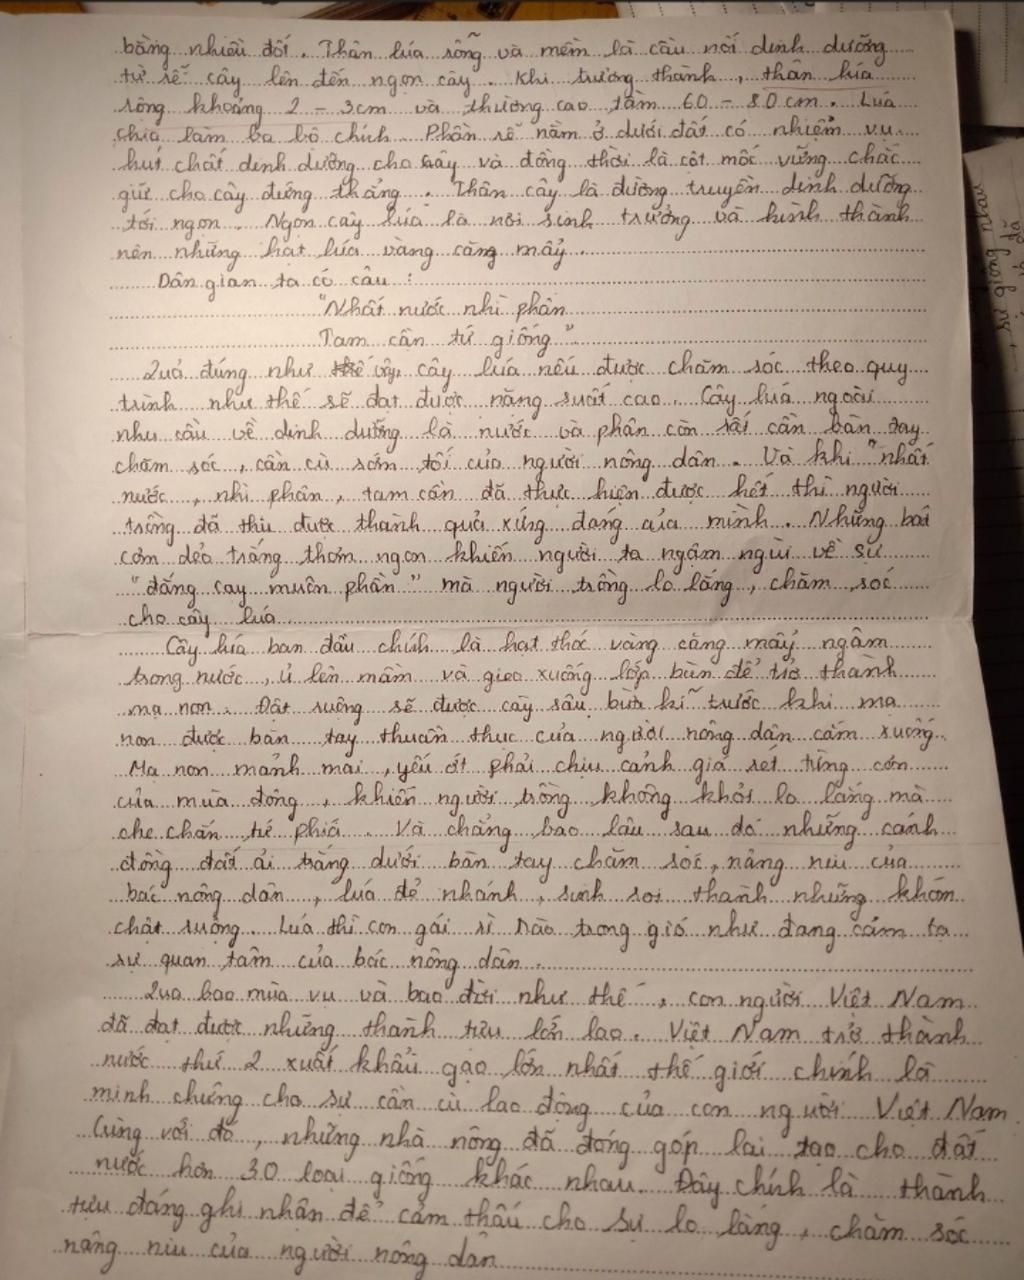 bằng nhiều đốt. Thân lúa rỗng và mềm là cầu nối dinh dưỡng
từ rễ cây lên đến ngọn cây. Khi trưởng thành, thân lúa
rộng khoảng 2 - 3cm và thường cao tầm 60 - 80 cm. Lúa
chia làm ba bộ chính. Phần rễ nằm ở dưới đất có nhiệm vụ
hút chất dinh dưỡng cho cây và đồng thời là cột mốc vững chắc
giữ cho cây đứng thẳng. Thân cây là đường truyền dinh dưỡng
tới ngọn. Ngọn cây lúa là nơi sinh trưởng và hình thành
nên những hạt lúa vàng căng mẩy.
Dân gian ta có câu :
"Nhất nước nhì phân
Tam cần tứ giống"
Quả đúng như vậy, cây lúa nếu được chăm sóc theo quy
trình như thế sẽ đạt được năng suất cao. Cây lúa ngoài
nhu cầu về dinh dưỡng là nước và phân còn rất cần bàn tay
chăm sóc, cần cù sớm tối của người nông dân. Và khi "nhất
nước, nhì phân, tam cần đã thực hiện được hết thì người
trồng đã thu được thành quả xứng đáng của mình. Những bát
cơm dẻo trắng thơm ngon khiến người ta ngậm ngùi về sự
"đắng cay muôn phần" mà người trồng lo lắng, chăm sóc
cho cây lúa.
Cây lúa ban đầu chính là hạt thóc vàng căng mẩy ngâm
trong nước, ủ lên mầm và gieo xuống lớp bùn để trở thành
mạ non. Đất ruộng sẽ được cày sâu bừa kĩ trước khi mạ
non được bàn tay thuần thục của người nông dân cắm xuống.
Mạ non mảnh mai, yếu ớt phải chịu cảnh giá rét từng cơn
của mùa đông, khiến người trồng không khỏi lo lắng mà
che chắn tứ phía. Và chẳng bao lâu sau đó những cánh
đồng đất ải trắng dưới bàn tay chăm sóc, nâng niu của
bác nông dân, lúa đẻ nhánh, sinh sôi thành những khóm
chật ruộng. Lúa thì con gái rì rào trong gió như đang cảm tạ
sự quan tâm của bác nông dân.
Qua bao mùa vụ và bao đời như thế, con người Việt Nam
đã đạt được những thành tựu lớn lao. Việt Nam trở thành
nước thứ 2 xuất khẩu gạo lớn nhất thế giới chính là
minh chứng cho sự cần cù lao động của con người Việt Nam
Cùng với đó, những nhà nông đã đóng góp lai tạo cho đất
nước hơn 30 loại giống khác nhau. Đây chính là thành
tựu đáng ghi nhận để cảm thấu cho sự lo lắng, chăm sóc
nâng niu của người nông dân